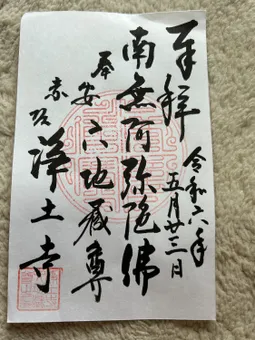 奉拝
令和六年
五月廿三日
南無阿弥陀佛
奉安六地蔵尊
赤坂浄土寺